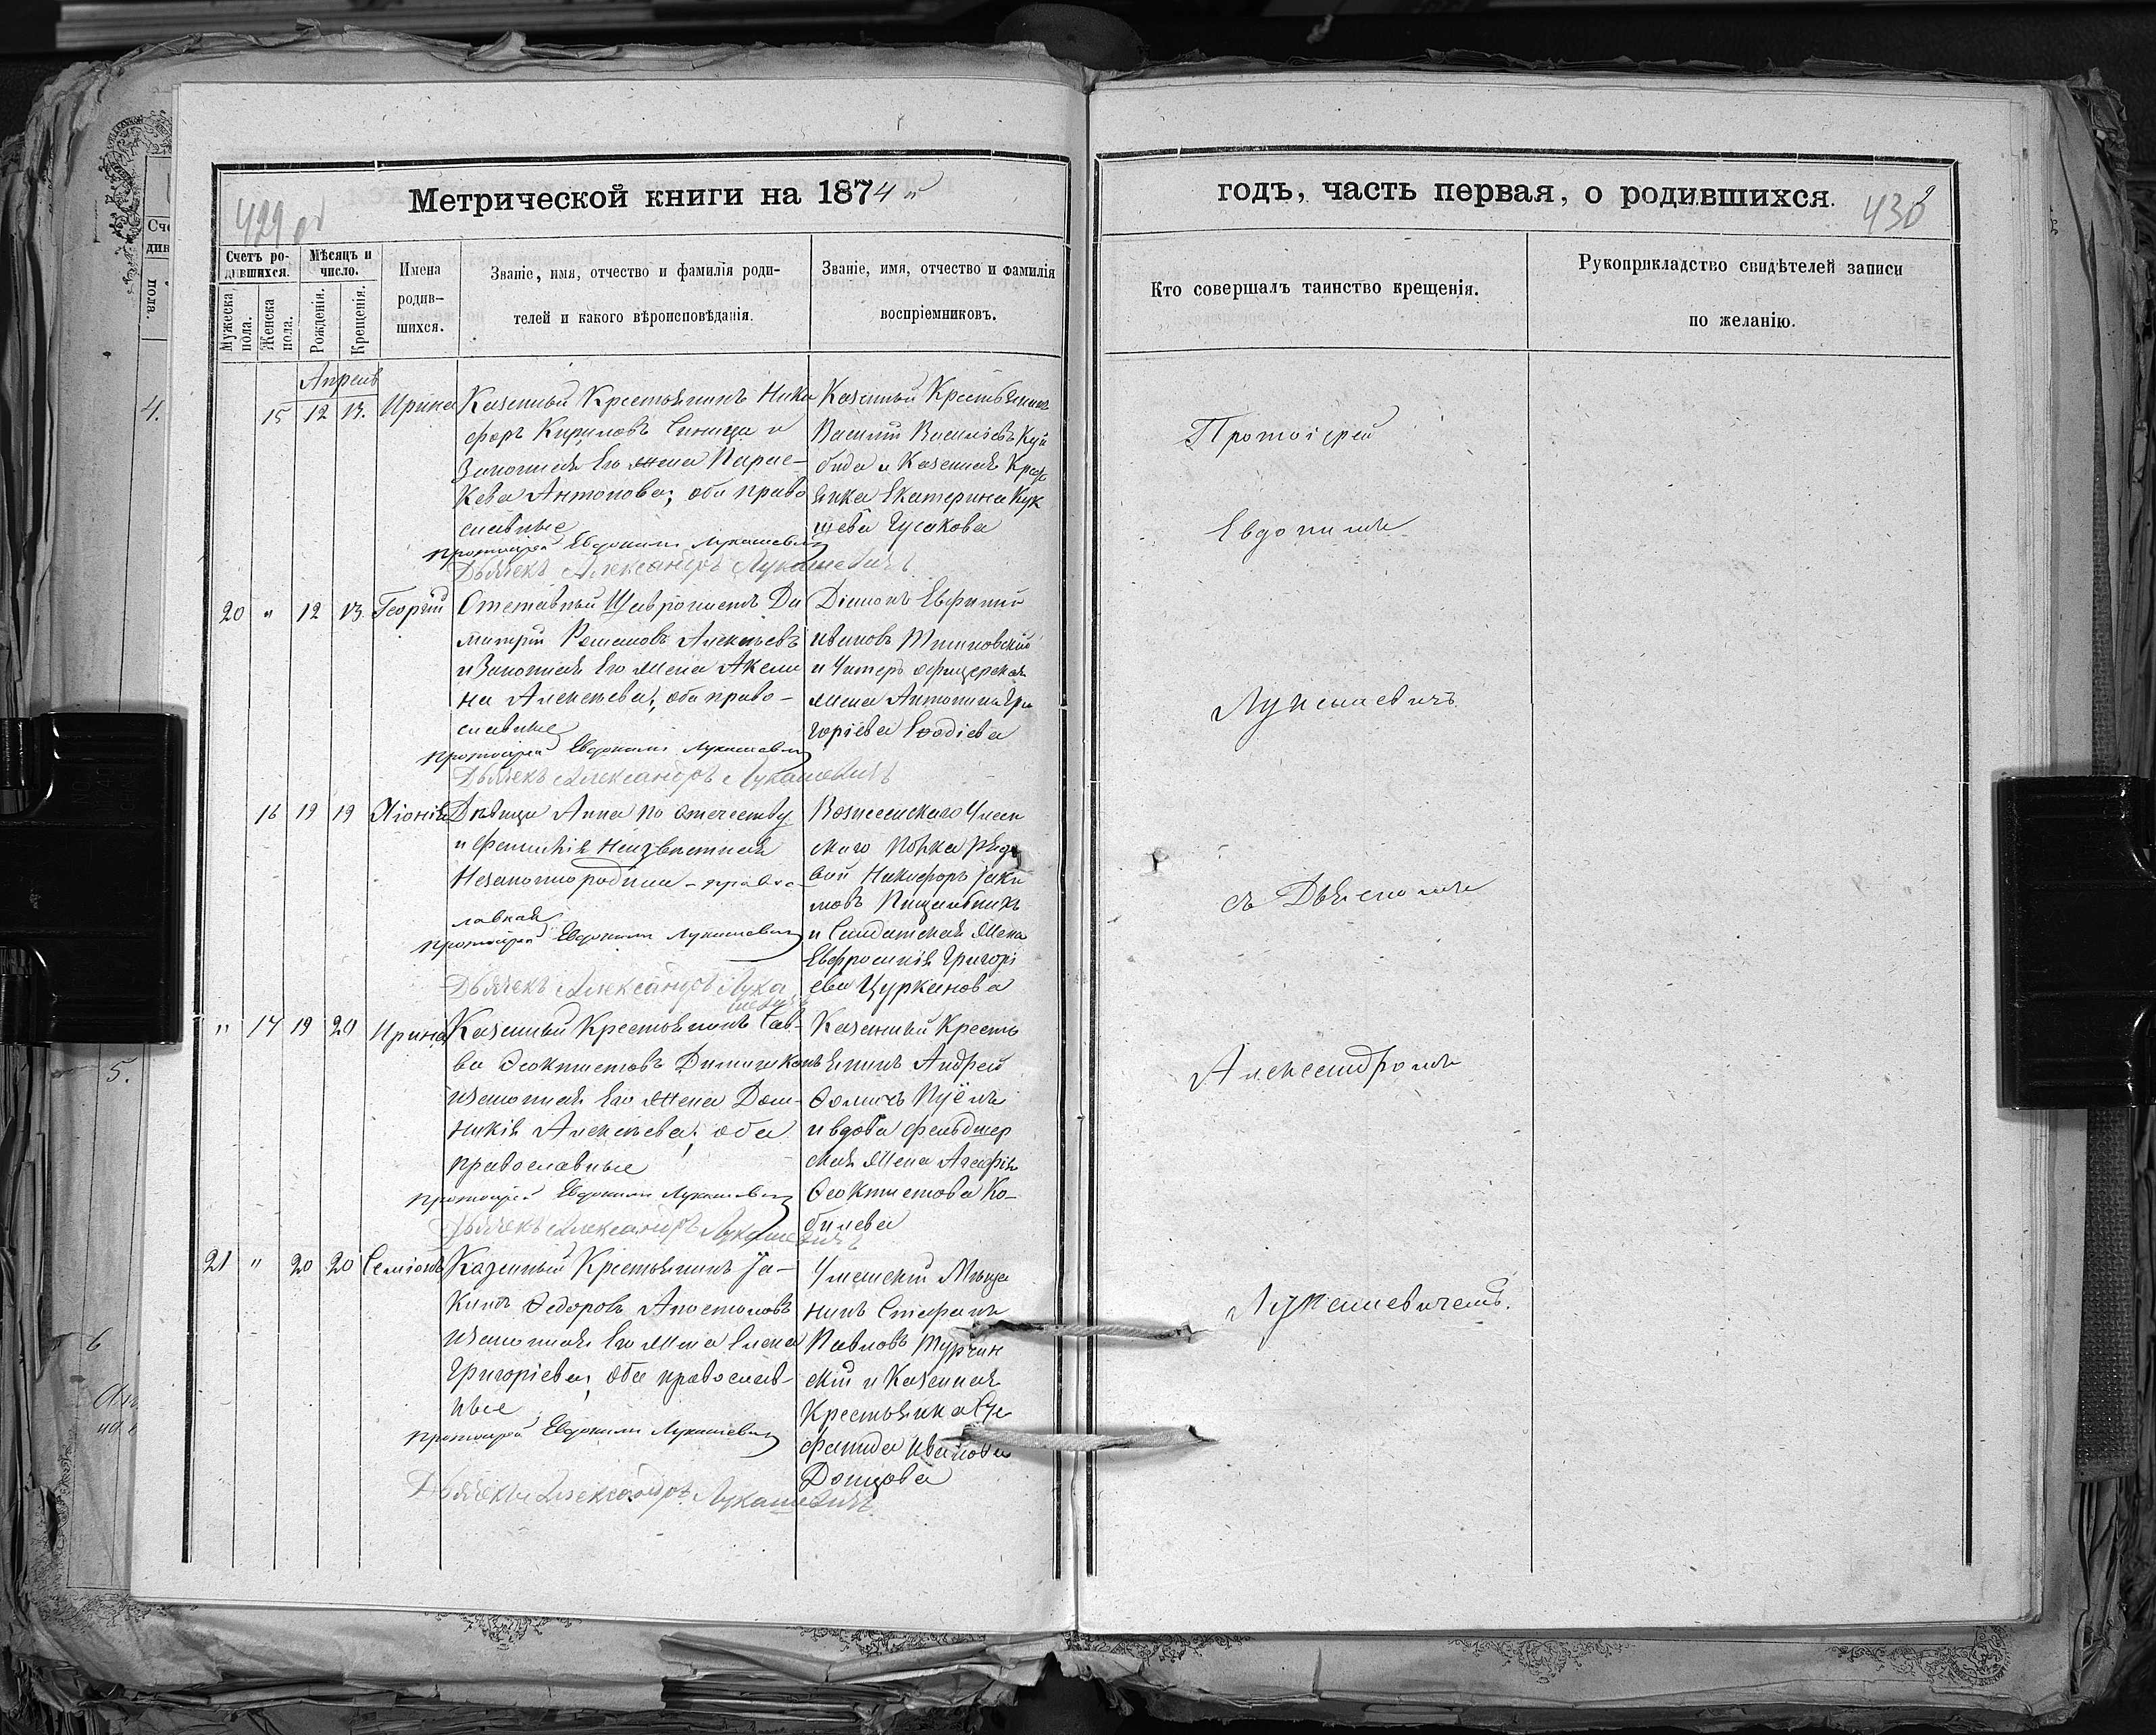 Метрической книги на 1874 „
429 об
Счетъ ро-
дившихся.
Мѣсяцъ и
число.
Мужеска
пола.
Женска
пола.
Рожденія.
Крещенія.
Имена
родив-
шихся.
Званіе, имя, отчество и фамилія роди-
телей и какого вѣроисповѣданія.
Званіе, имя, отчество и фамилія
воспріемниковъ.
Апреля
15 12 13. Ирина
Казенный Крестьянинъ Ники
форъ Кириловъ Синица и
Законная Его жена Парас-
кева Антонова; оба право
славные
Протоіерей Евдокимъ Лукашевичъ
Дьячекъ Александръ Лукашевичъ
Казенный Крестьянинъ
Василій Василіевъ Куй
бида и Казенная Крест
янка Екатерина
Гусакова
20 „ 12 13. Георгій
Отставный Ди
митрій Алексѣевъ
и Законная Его жена Акили
на Алексѣева; оба право-
славные
Протоіерей Евдокимъ Лукашевичъ
Дьячекъ Александръ Лукашевичъ
Діаконъ Евфимій
Ивановъ
и Унтеръ офицерская
жена Антонина Гри
горіева
16 19 19 Хіонія
Дѣвица Анна по отчеству
и Фамиліи Неизвѣстная
Незаконнородная - правос
лавная
Протоіерей Евдокимъ Лукашевичъ
Дьячекъ Александръ Лука
шевичъ
Вознесенскаго Улан
скаго Полка Рядо
вой Никифоръ Іаки
мовъ
и Солдатская жена
Евфросинія Григорі
ева Цурканова
„ 17 19 20 Ирина
Казенный Крестьянинъ Сав-
ва Ѳеоктистовъ
и Законная Его жена Дом-
никія Алексѣева; оба
православные
Протоіерей Евдокимъ Лукашевичъ
Дьячекъ Александръ Лукашевичъ
Казенный Кресть
янинъ Андрей
и вдова фельдшер
ская жена Агафія
Ѳеоктистова Ко-
билева
21 „ 20 20 Симіонъ
Казенный Крестьянинъ Іа-
кимъ Ѳедоровъ Апостоловъ
и Законная Его жена Елена
Григоріева; оба православ-
ные
Протоіерей Евдокимъ Лукашевичъ
Дьячекъ Александръ Лукашевичъ
Уманскій Мѣща
нинъ Стефанъ
Павловъ Турчин
скій и Казенная
Крестьянка
Иванова
Донцова
годъ, часть первая, о родившихся.
430
Кто совершалъ таинство крещенія.
Рукоприкладство свидѣтелей записи
по желанію.
Протоіерей
Евдокимъ
Лукашевичъ
съ Дьячкомъ
Александромъ
Лукашевичемъ.
4.
5.
6